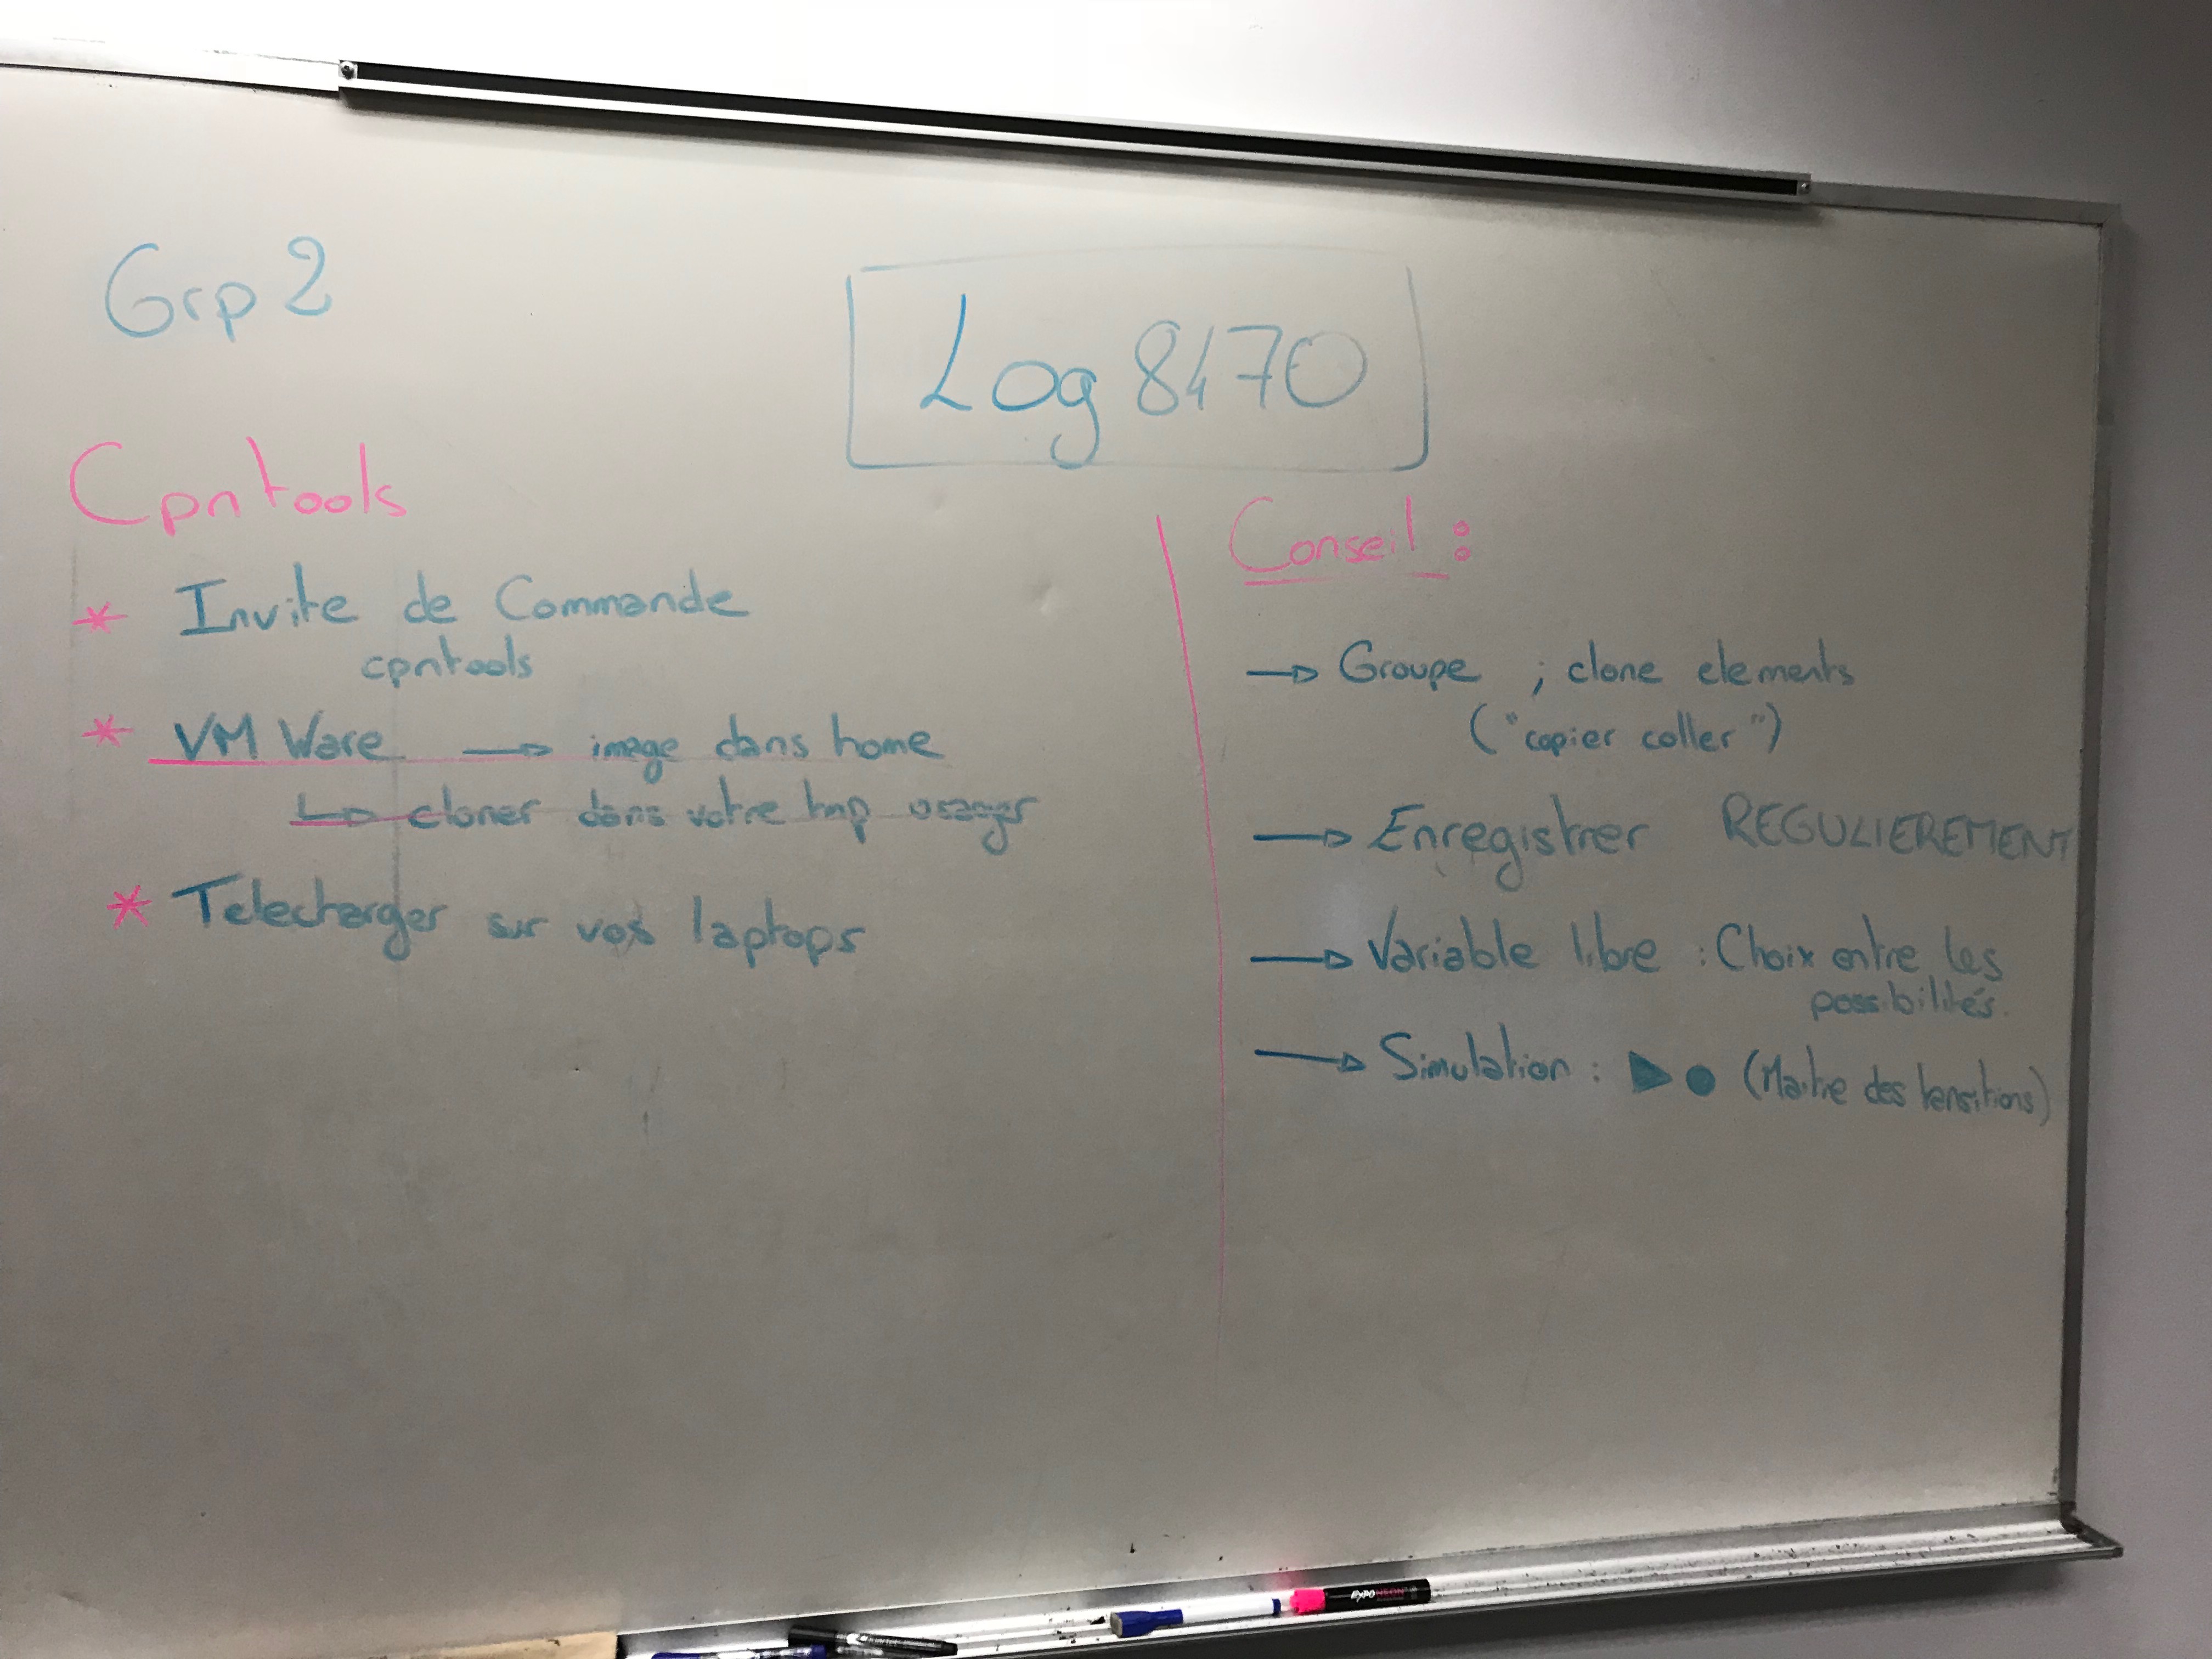 Grp 2
Log 8470
Cpntools
* Invite de Commande
cpntools
* VM Ware → image dans home
↳ cloner dans votre tmp usager
* Telecharger sur vos laptops
Conseil :
→ Groupe ; clone elements
("copier coller")
→ Enregistrer REGULIEREMENT
→ Variable libre : Choix entre les
possibilités.
→ Simulation : ▶ ● (Maitre des transitions)
EXPO NEON